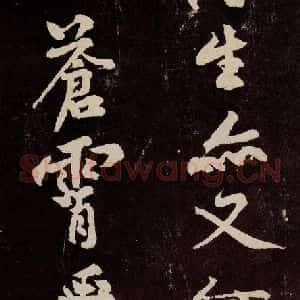 生変
蒼霄
Shufawang.CN